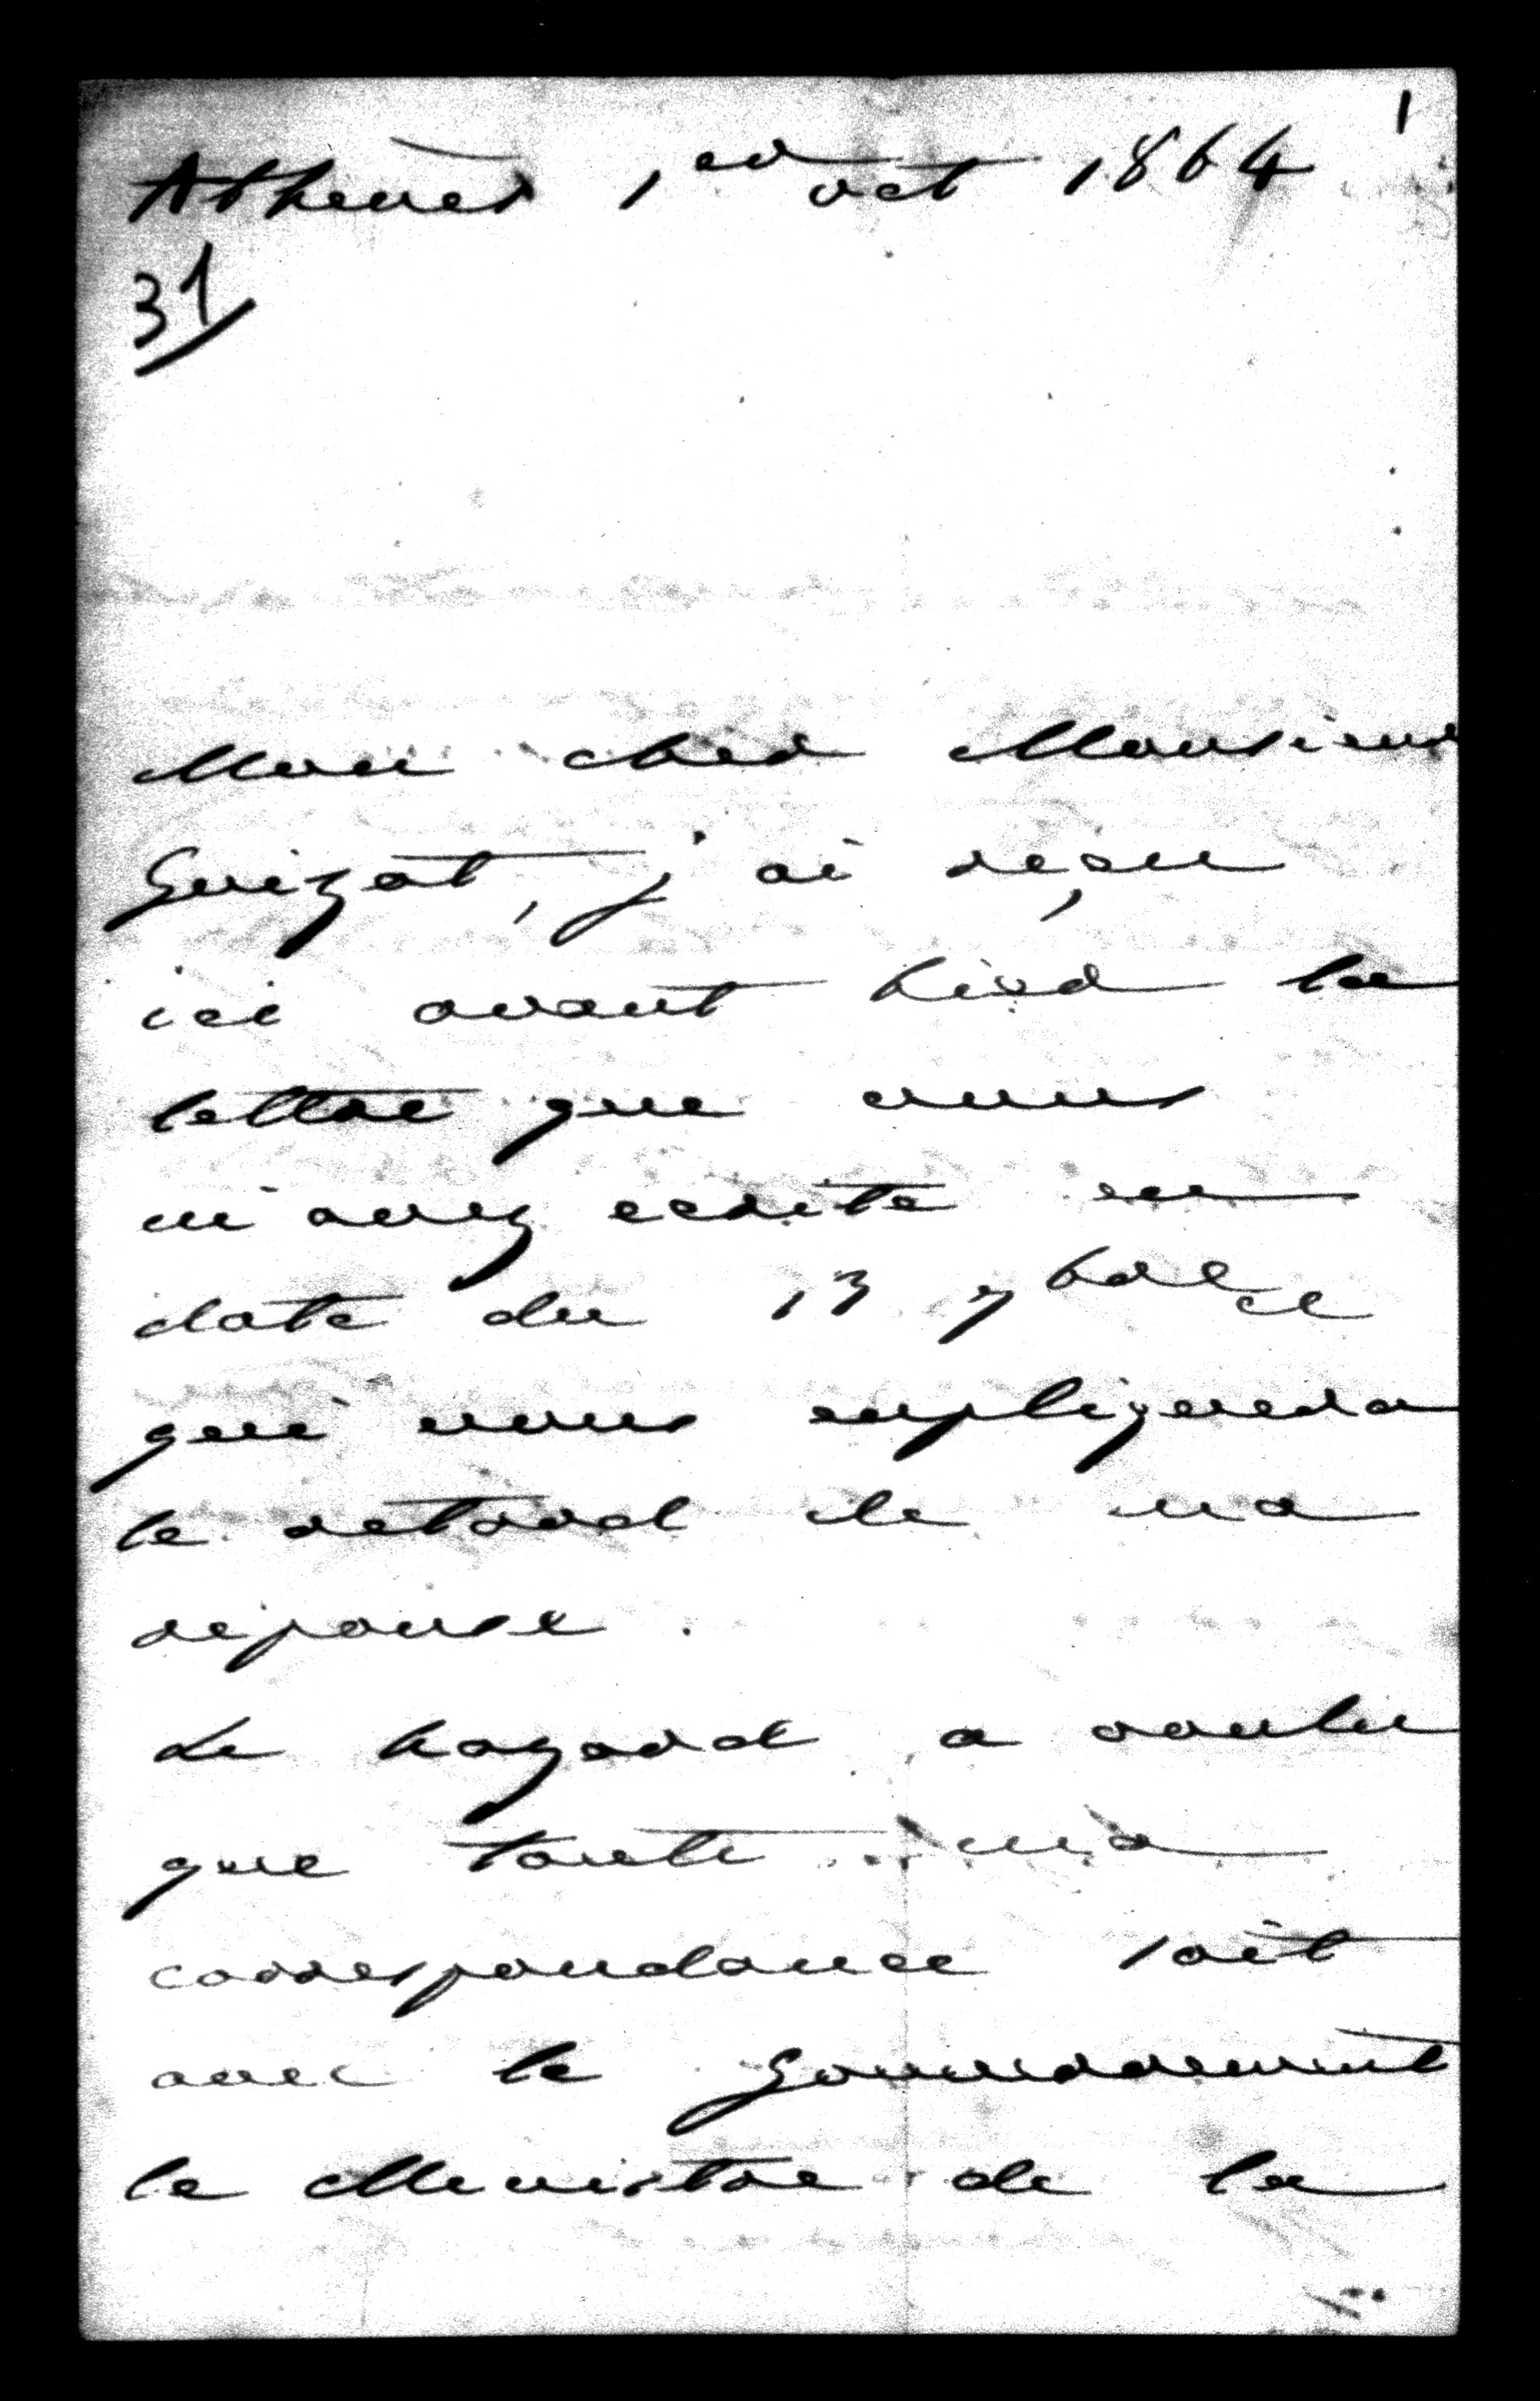 1
Athènes 1er oct 1864
31
Mon cher Monsieur
Guizot, j'ai reçu
ici avant hier la
lettre que vous
m'avez ecrite en
date du 13 7bre ce
qui vous expliquera
le retard de ma
reponse.
Le hazard a voulu
que toute ma
correspondance soit
avec le Gouvernement
le Ministre de la